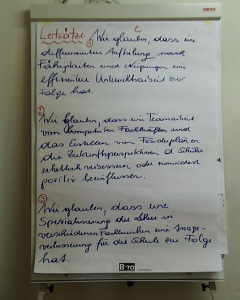 Leitsätze
① Wir glauben, dass eine
differenzierte Aufteilung nach
Fähigkeiten und Neigungen eine
effiziente Unterrichtsarbeit zur
Folge hat.
② Wir glauben, dass wir Teamarbeit
von kompetenten Fachkräften und
das Erstellen von Förderplänen
die Zukunftsperspektiven d. Schüler
erheblich verbessern oder zumindest
positiv beeinflussen.
③ Wir glauben, dass eine
Spezialisierung der Lehrer in
verschiedenen Fachbereichen eine Image-
verbesserung für die Schule zur Folge
hat.